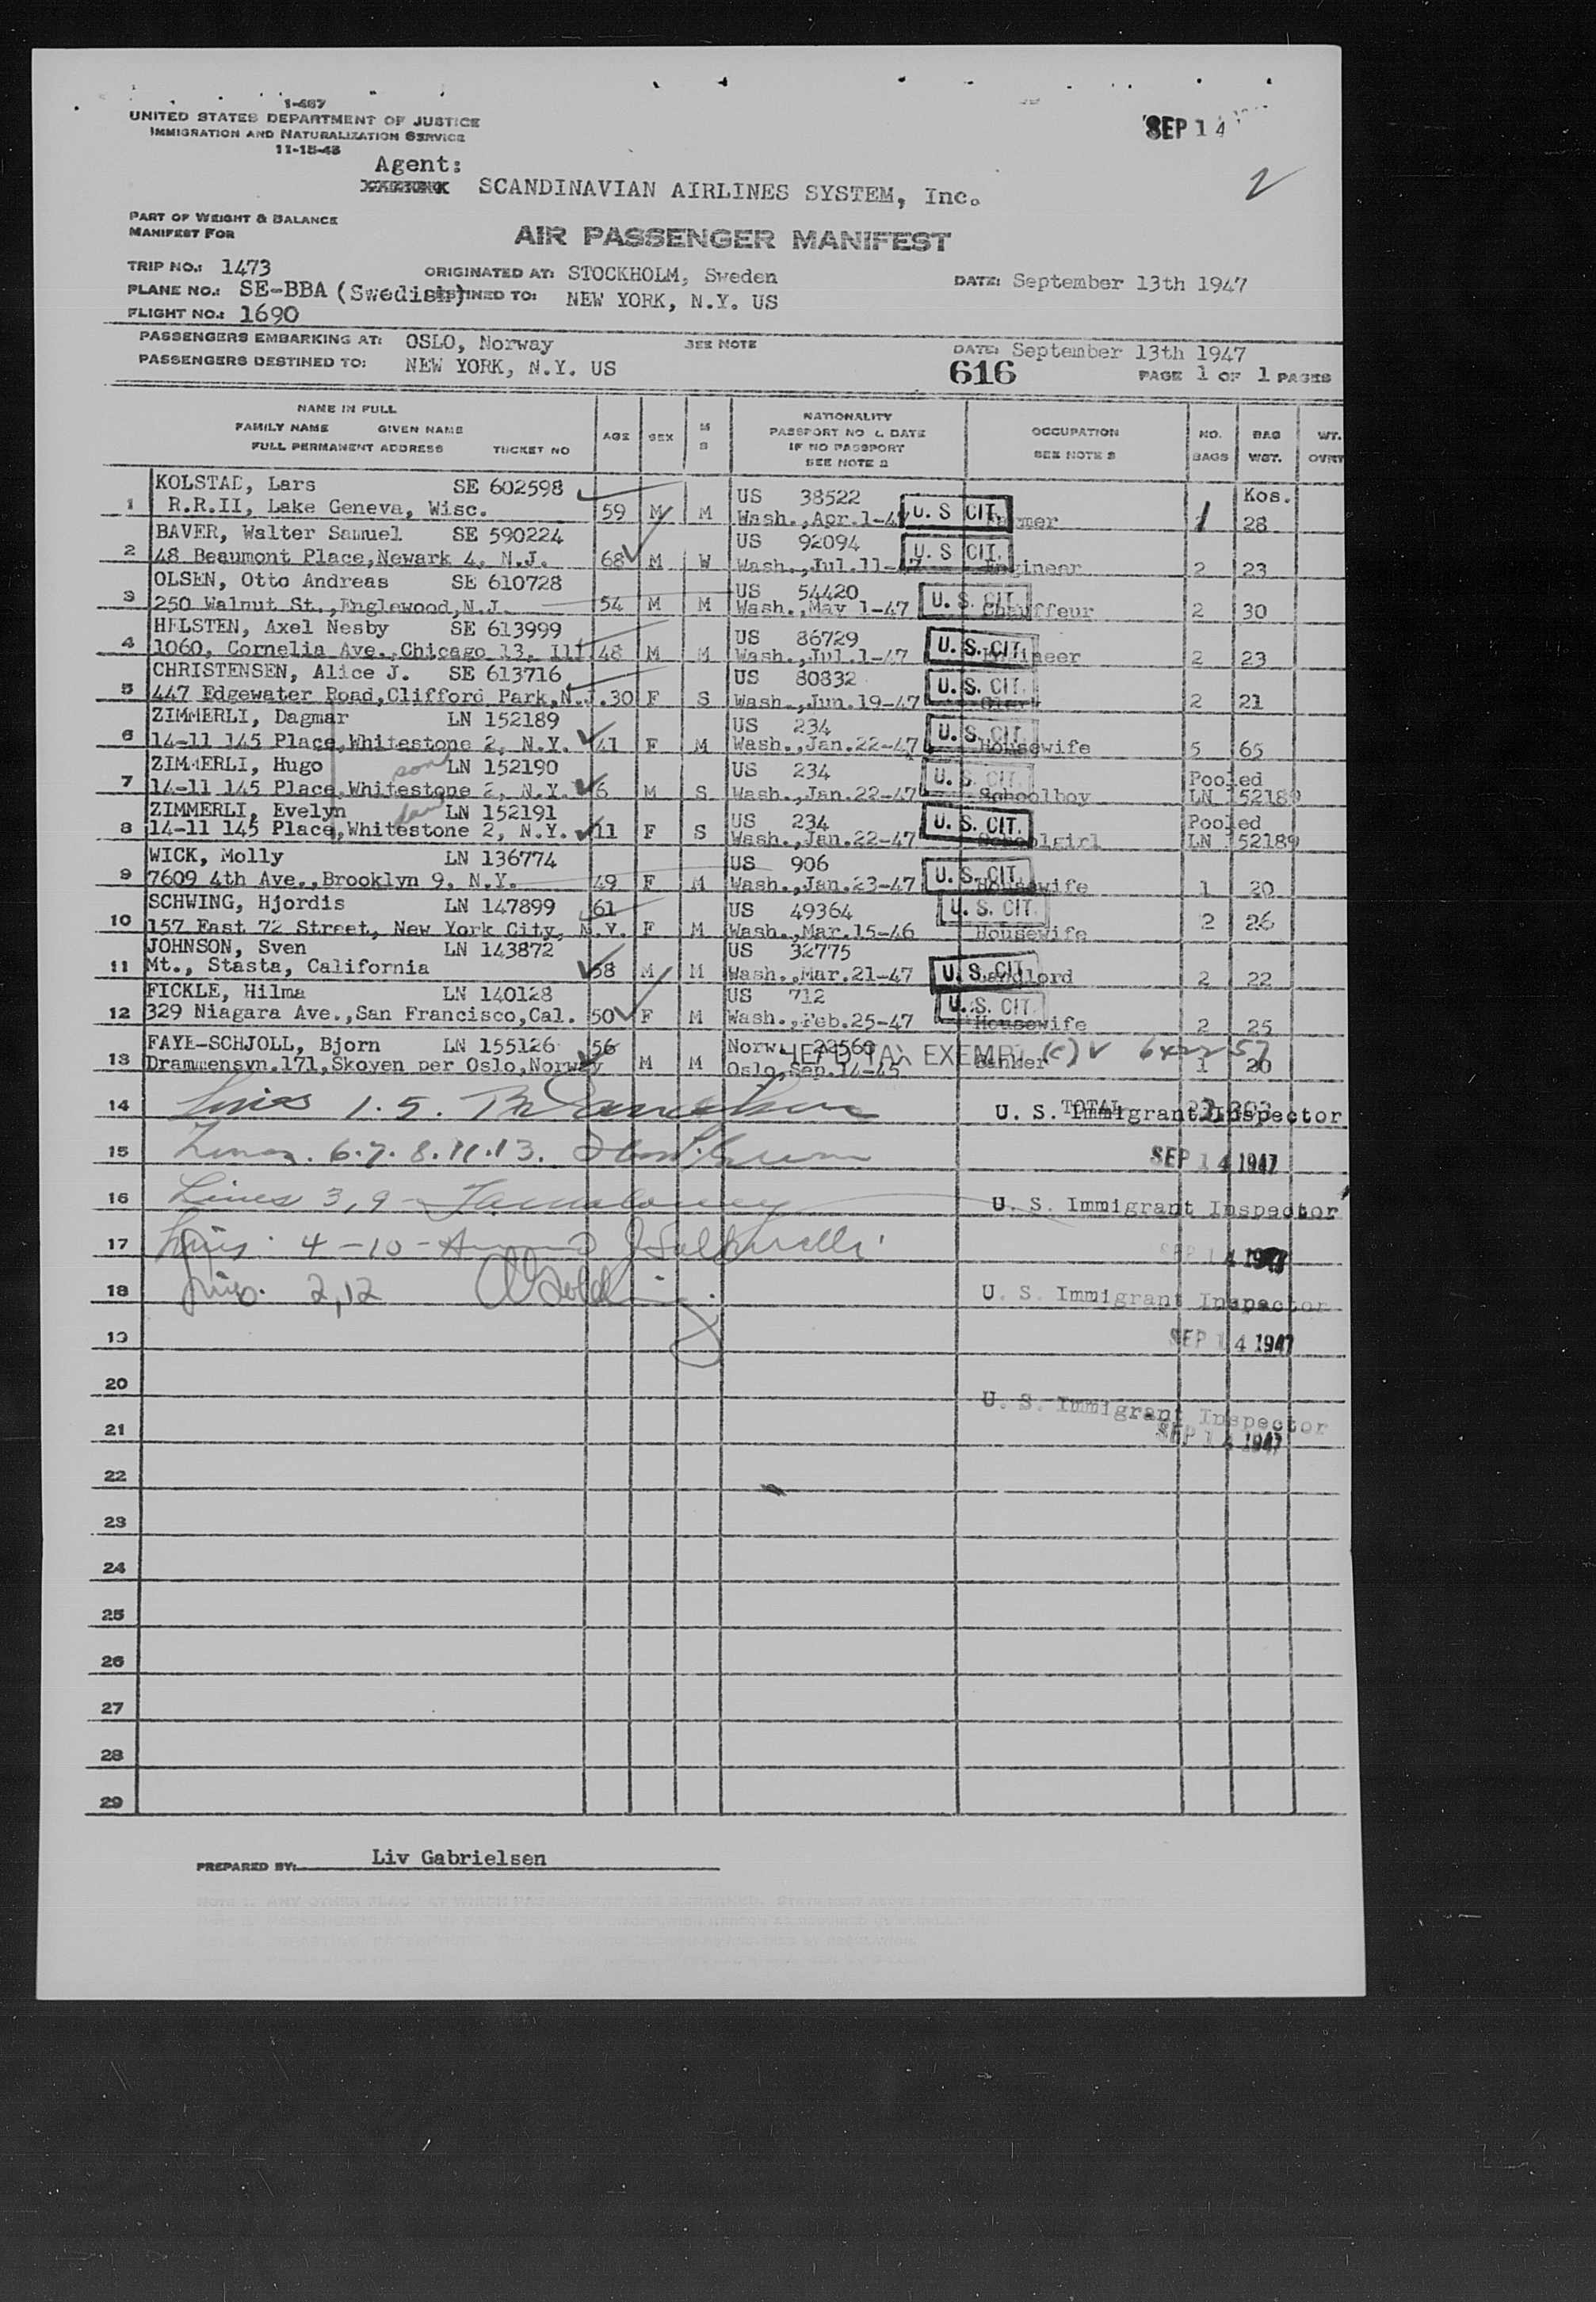 1-467
UNITED STATES DEPARTMENT OF JUSTICE
IMMIGRATION AND NATURALIZATION SERVICE
11-15-45
SEP 14
Agent:
SCANDINAVIAN AIRLINES SYSTEM, Inc.
2
PART OF WEIGHT & BALANCE
MANIFEST FOR
AIR PASSENGER MANIFEST
TRIP NO.: 1473 ORIGINATED AT: STOCKHOLM, Sweden DATE: September 13th 1947
PLANE NO.: SE-BBA (Swedish) DESTINED TO: NEW YORK, N.Y. US
FLIGHT NO.: 1690
PASSENGERS EMBARKING AT: OSLO, Norway SEE NOTE DATE: September 13th 1947
PASSENGERS DESTINED TO: NEW YORK, N.Y. US 616 PAGE 1 OF 1 PAGES
NAME IN FULL
FAMILY NAME GIVEN NAME
FULL PERMANENT ADDRESS TICKET NO
AGE SEX M S
NATIONALITY
PASSPORT NO & DATE
IF NO PASSPORT
SEE NOTE 2
OCCUPATION
SEE NOTE 3
NO. BAGS
BAG WGT.
WT. OVRT
KOLSTAD, Lars SE 602598 US 38522 Kos.
1 R.R.II, Lake Geneva, Wisc. 59 M M Wash.,Apr.1-47 U. S CIT. Farmer 1 28
BAVER, Walter Samuel SE 590224 US 92094
2 48 Beaumont Place,Newark 4, N.J. 68 M W Wash.,Jul.11-47 U. S CIT. Engineer 2 23
OLSEN, Otto Andreas SE 610728 US 54420
3 250 Walnut St.,Englewood,N.J. 54 M M Wash.,May 1-47 U. S. CIT. Chauffeur 2 30
HELSTEN, Axel Nesby SE 613999 US 86729
4 1060, Cornelia Ave.,Chicago 13, Ill 48 M M Wash.,Jul.1-47 U. S. CIT. Engineer 2 23
CHRISTENSEN, Alice J. SE 613716 US 80832
5 447 Edgewater Road,Clifford Park,N.J. 30 F S Wash.,Jun.19-47 U. S. CIT. 2 21
ZIMMERLI, Dagmar LN 152189 US 234
6 14-11 145 Place,Whitestone 2, N.Y. 41 F M Wash.,Jan.22-47 U. S. CIT. Housewife 5 65
ZIMMERLI, Hugo son LN 152190 US 234 Pooled
7 14-11 145 Place,Whitestone 2, N.Y. 6 M S Wash.,Jan.22-47 U. S. CIT. Schoolboy LN 152189
ZIMMERLI, Evelyn LN 152191 US 234 Pooled
8 14-11 145 Place,Whitestone 2, N.Y. 11 F S Wash.,Jan.22-47 U. S. CIT. Schoolgirl LN 152189
WICK, Molly LN 136774 US 906
9 7609 4th Ave.,Brooklyn 9, N.Y. 49 F M Wash.,Jan.23-47 U. S. CIT. Housewife 1 20
SCHWING, Hjordis LN 147899 61 US 49364 U. S. CIT.
10 157 East 72 Street, New York City, N.Y. F M Wash.,Mar.15-46 Housewife 2 26
JOHNSON, Sven LN 143872 US 32775
11 Mt., Stasta, California 58 M M Wash.,Mar.21-47 U. S. CIT. Landlord 2 22
FICKLE, Hilma LN 140128 US 712
12 329 Niagara Ave.,San Francisco,Cal. 50 F M Wash.,Feb.25-47 U. S. CIT. Housewife 2 25
FAYE-SCHJOLL, Bjorn LN 155126 56 Norw. 22560 HEAD TAX EXEMPT (c)
13 Drammensvn.171,Skoyen per Oslo,Norway M M Oslo,Sep.14-45 Banker 1 20
14 Lines 1. 5. TOTAL U. S. Immigrant Inspector
15 Lines. 6. 7. 8. 11. 13. SEP 14 1947
16 Lines 3, 9 U. S. Immigrant Inspector
17 Lines. 4 - 10 SEP 14 1947
18 Lines. 2, 12 U. S. Immigrant Inspector
19 SEP 14 1947
20 U. S. Immigrant Inspector
21 SEP 14 1947
22
23
24
25
26
27
28
29
PREPARED BY: Liv Gabrielsen